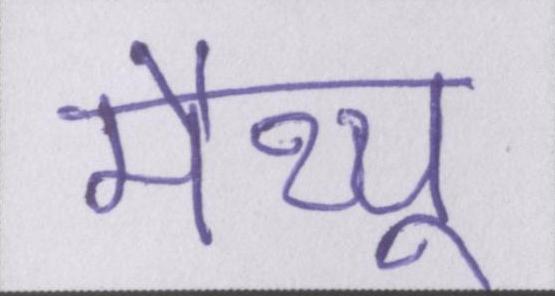 मैथ्यू